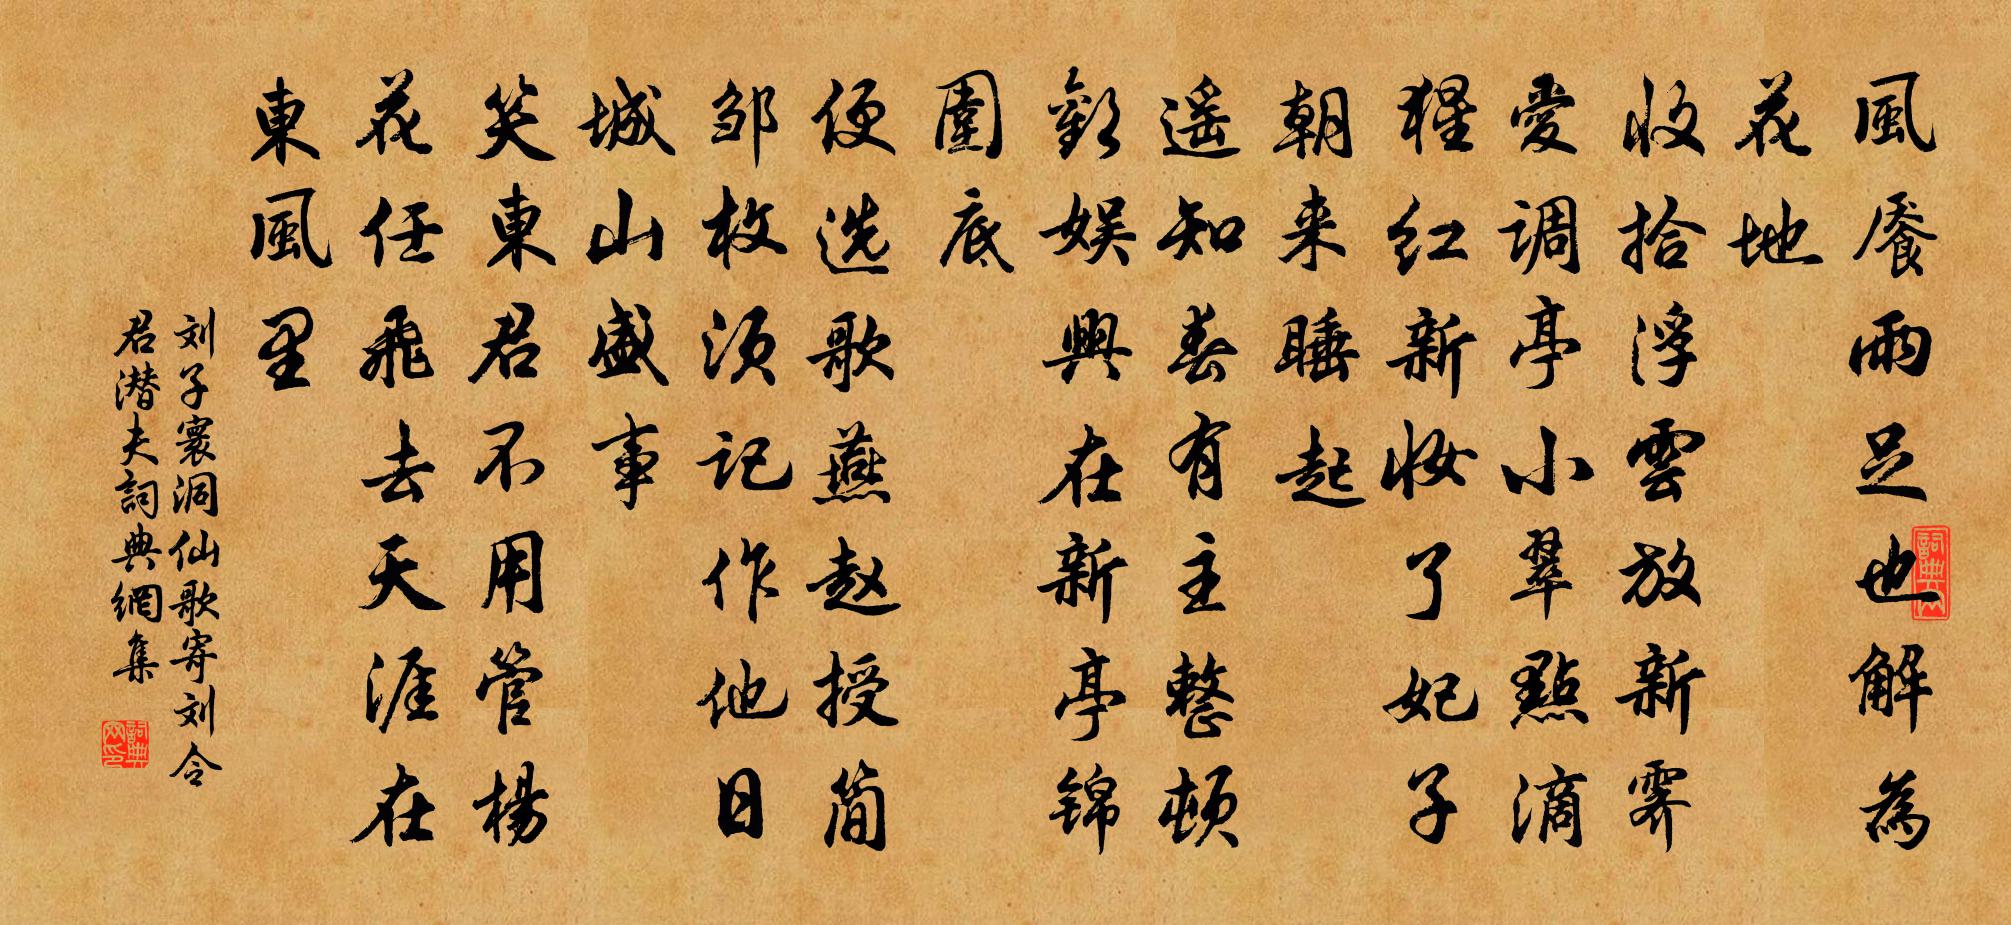 風饕雨足也解為
花地
收拾浮雲放新霽
愛調亭小翠點滴
猩红新妆了妃子
朝来睡起
遥知春有主整頓
歡娱興在新亭锦
圍底
便选歌燕赵授简
邹枚须记作他日
城山盛事
笑東君不用管楊
花任飛去天涯在
東風里
刘子寰洞仙歌寄刘令
君潜夫詞典網集
詞典網
詞典網印